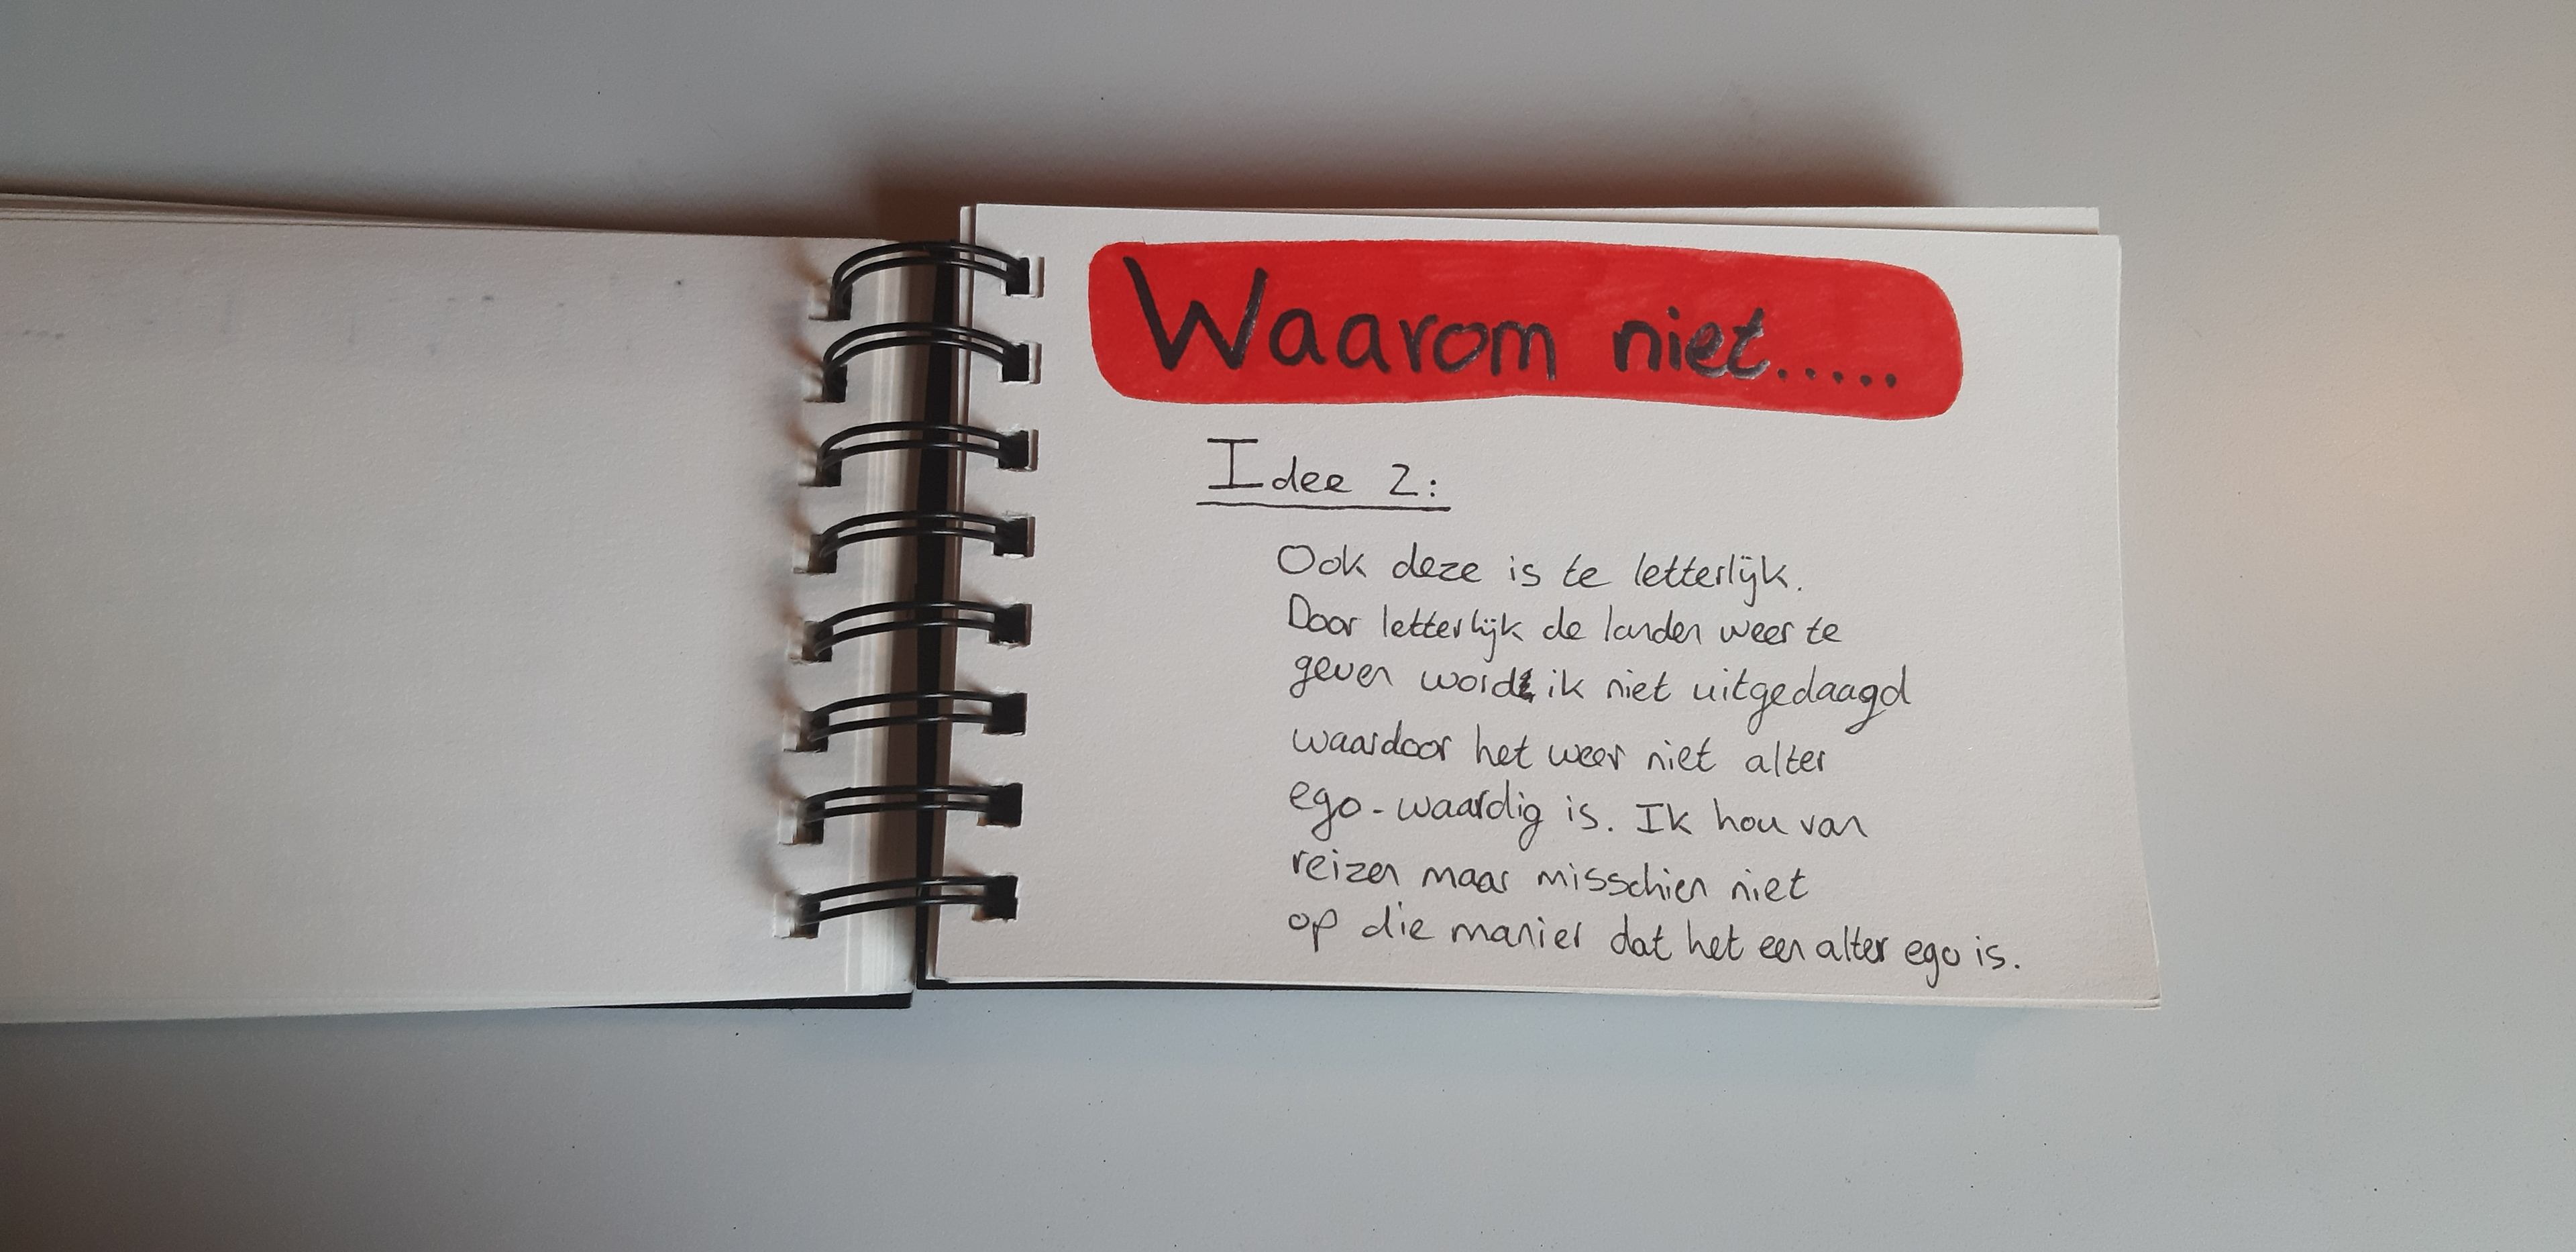 Waarom niet.....
Idee 2:
Ook deze is te letterlijk.
Door letterlijk de landen weer te
geven word ik niet uitgedaagd
waardoor het weer niet alter
ego-waardig is. Ik hou van
reizen maar misschien niet
op die manier dat het een alter ego is.